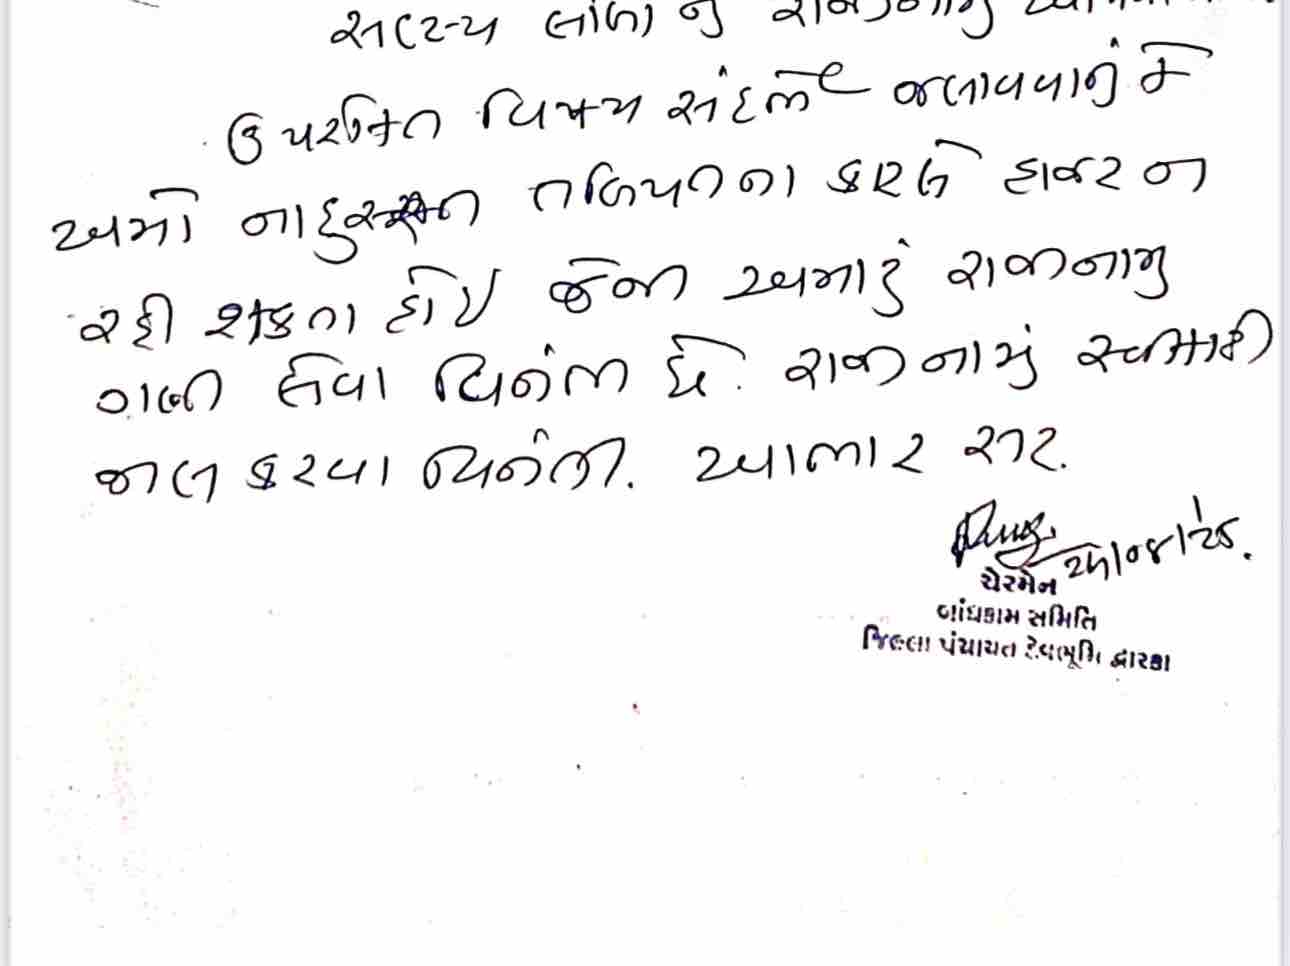 સદસ્ય નું રાજીનામું
ઉપરોક્ત વિષય સંદર્ભે જણાવવાનું કે
અમો નાદુરસ્ત તબિયતના કારણે હાજર ન
રહી શકતા હોઈ જેથી અમારું રાજીનામુ
ગણી લેવા વિનંતી છે. રાજીનામું સ્વીકારી
જાણ કરવા વિનંતી. આભાર સર.
૨૫/૦૪/૨૫.
ચેરમેન
બાંધકામ સમિતિ
જિલ્લા પંચાયત દેવભૂમિ દ્વારકા